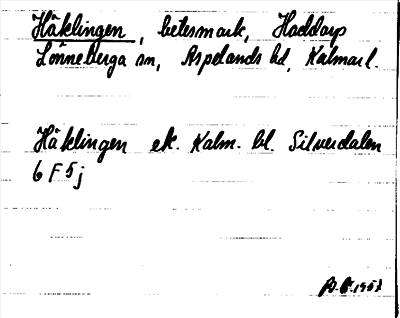 Häklingen, betesmark, Haddarp
Lönneberga sn, Aspelands hd, Kalmar l.
Häklingen ek. Kalm. bl. Silverdalen
6 F 5 j